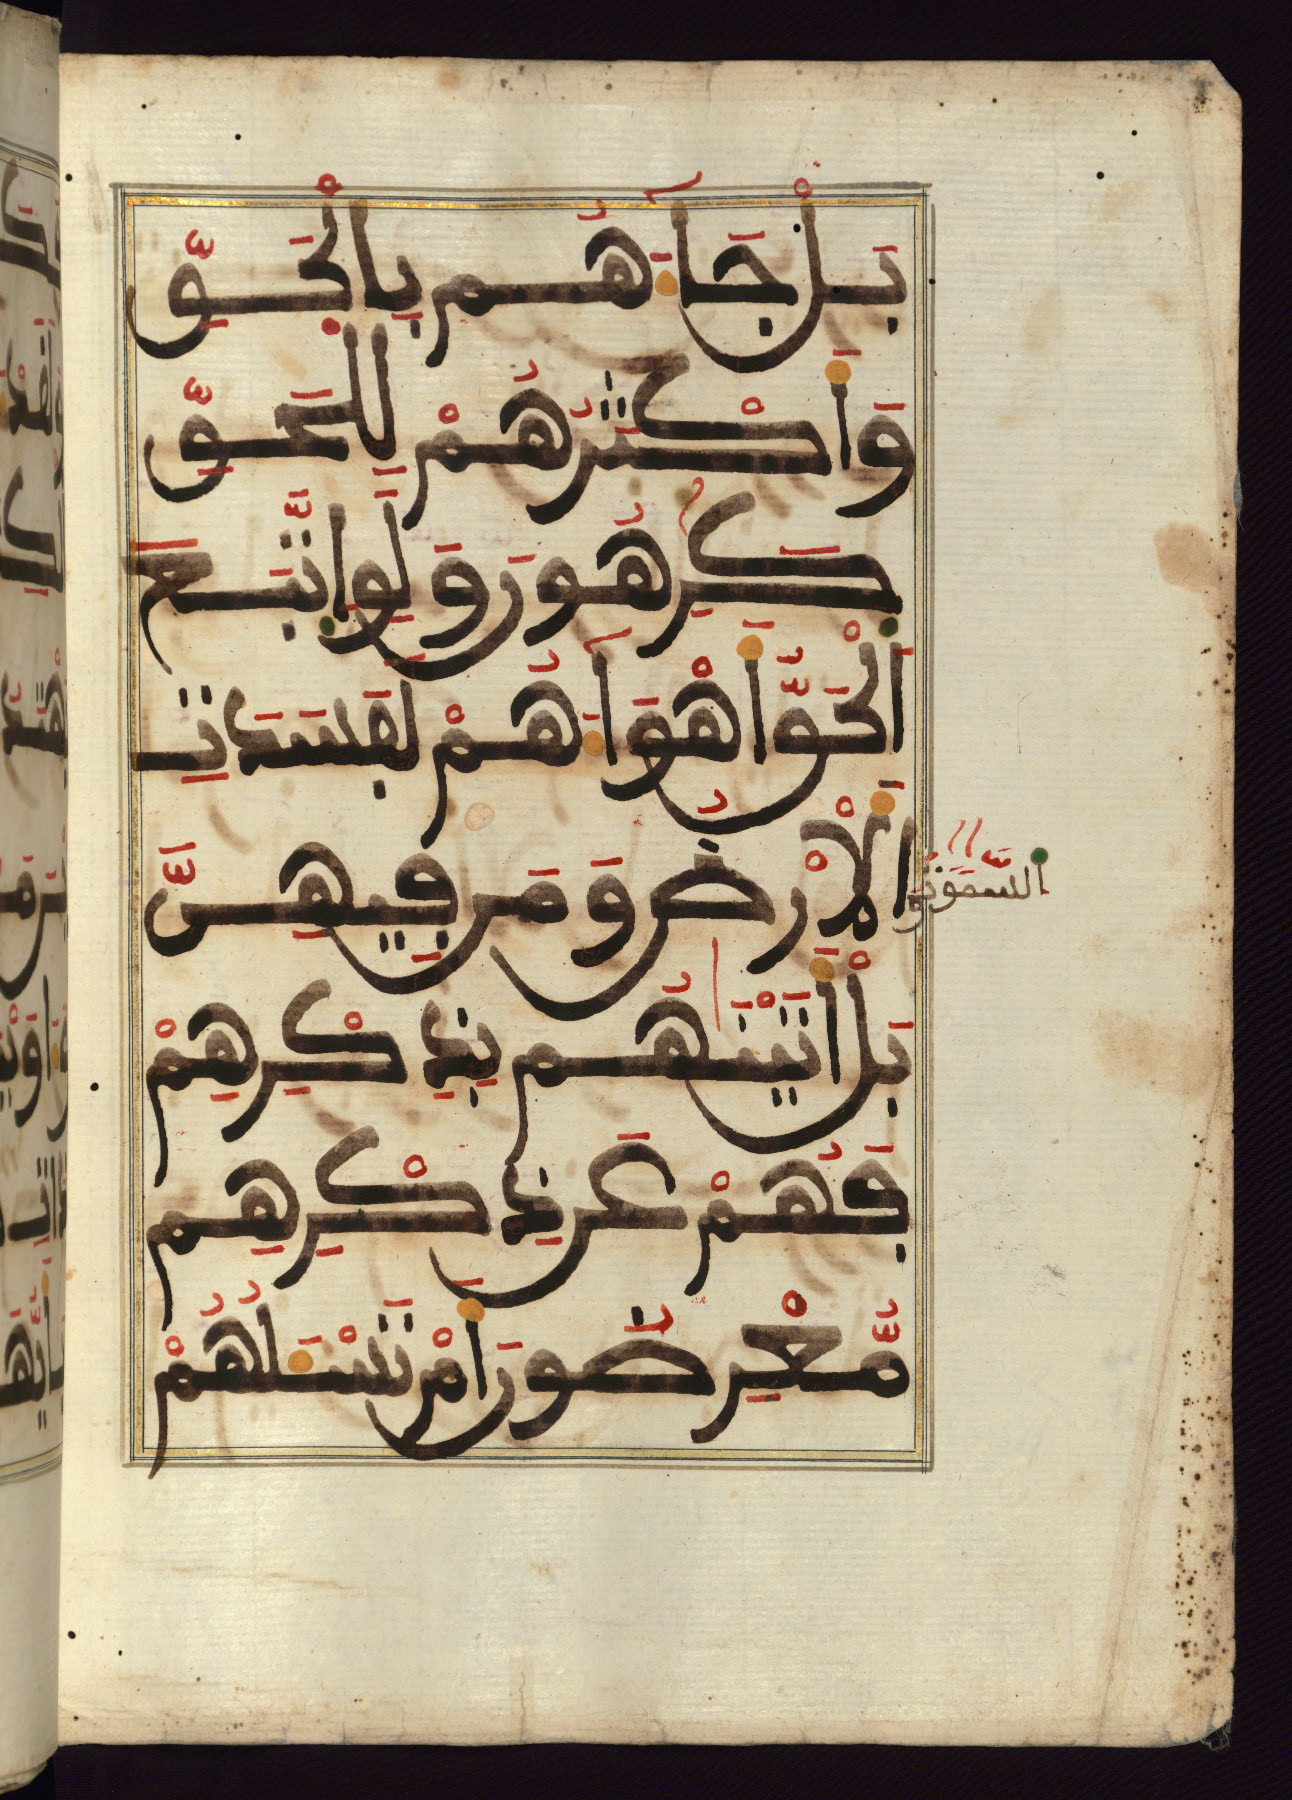 بَلْ جَآءَهُم بِالْحَقِّ
وَأَكْثَرُهُمْ لِلْحَقِّ
كَٰرِهُونَ وَلَوِ اتَّبَعَ
اَلْحَقُّ أَهْوَآءَهُمْ لَفَسَدَتِ
السَّمَٰوَٰتُ
وَالْأَرْضُ وَمَن فِيهِنَّ
بَلْ أَتَيْنَٰهُم بِذِكْرِهِمْ
فَهُمْ عَن ذِكْرِهِم
مُّعْرِضُونَ أَمْ تَسْـَٔلُهُمْ